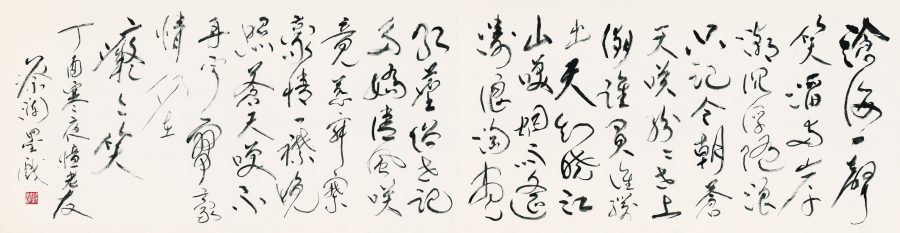 滄海一聲
笑滔々兩岸
潮沉浮隨浪
只記今朝蒼
天笑紛々世上
潮誰負誰勝
出天知曉江
山笑烟雨遙
濤浪淘盡
紅塵俗世記
多嬌清風笑
竟惹寂寥
豪情一襟晚
照蒼天笑不
再寂寥豪
情仍在
癡々笑
丁酉寒夜憶老友
蔡瀾墨戲